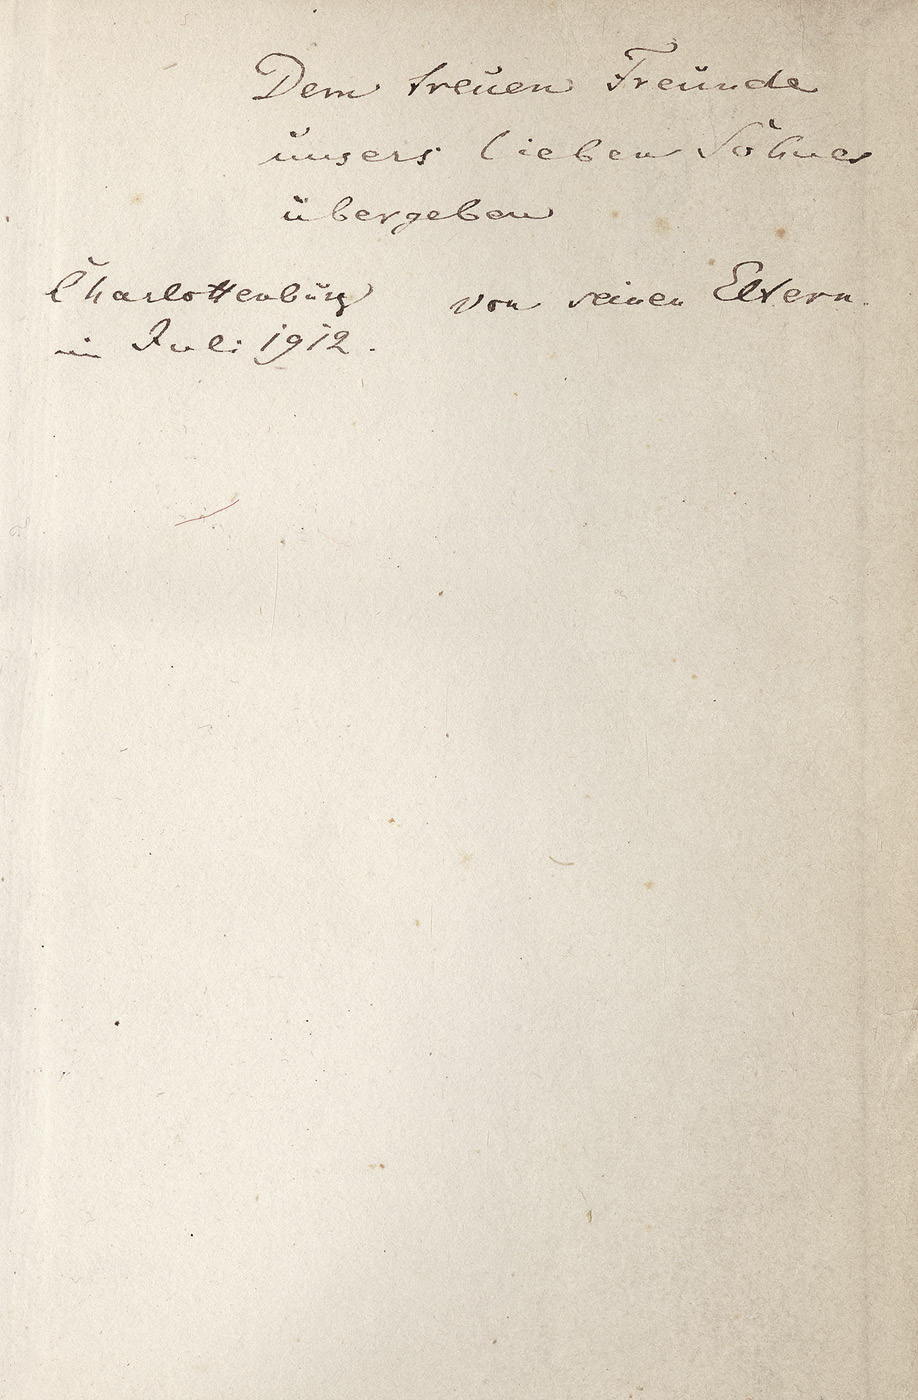 Dem treuen Freunde
unsers lieben Sohnes
übergeben
Charlottenburg von seinen Eltern.
im Juli 1912.